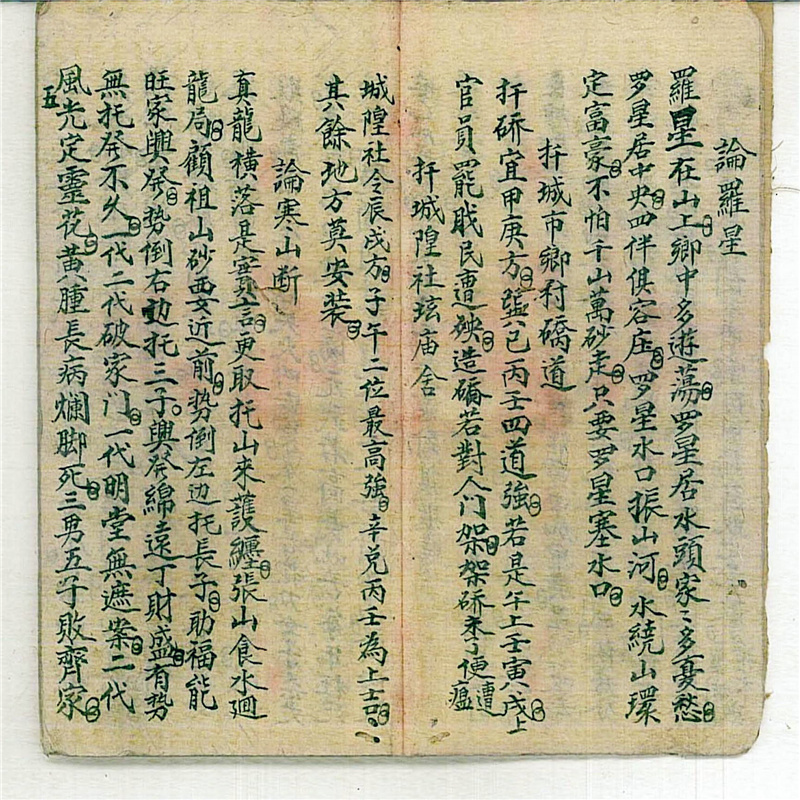 論羅星
羅星在山上鄉中多遊蕩罗星居水頭家〻多憂愁
罗星居中央四伴俱容庄罗星水口振山河水繞山環
定富豪不怕千山萬砂走只要罗星塞水口
扦城市鄉村礄道
扦硚宜甲庚方艮巳丙壬四道強若是午上壬寅戌上
官員罷戝民遭殃造礄若對人门架架硚未了便遭瘟
扦城隍社坛庙舍
城隍社令辰戌方子午二位最高強辛兑丙壬為上吉
其餘地方莫安装
論寒山断
真龍横落是寔言更取托山來護纏張山食水廻
龍局顧祖山砂要近前势倒左边托長子助福能
旺家興発势倒右边托三子興発綿遠丁財盛有势
無托発不久一代二代破家门一代明堂無遮案二代
風光定靈花黄腫長病爛脚死三男五子敗齊家
五